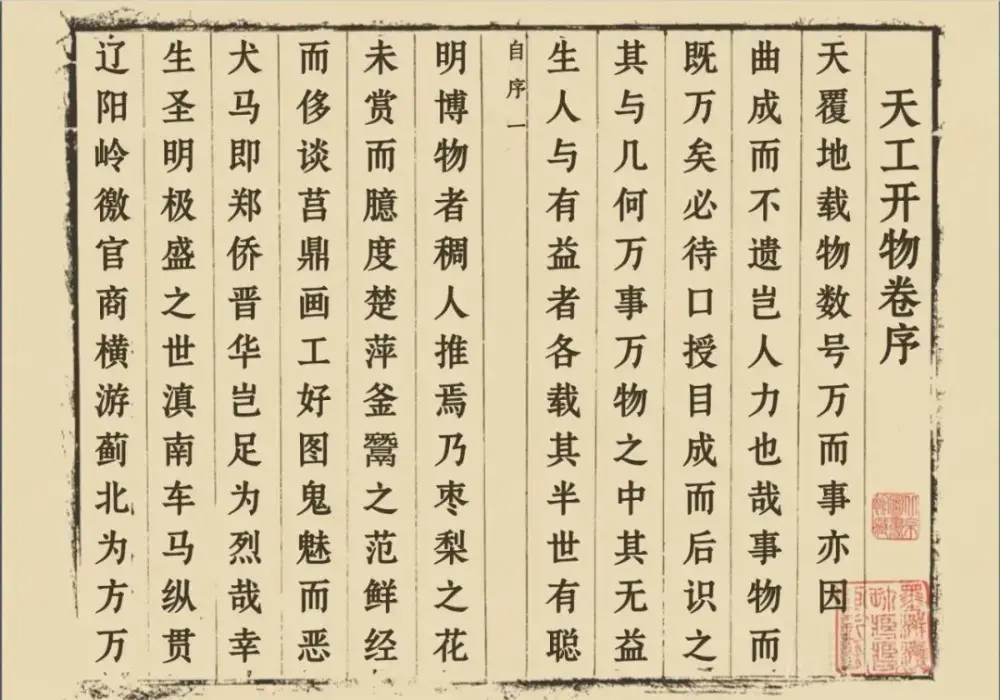 天工开物卷序
天覆地载物数号万而事亦因
曲成而不遗岂人力也哉事物而
既万矣必待口授目成而后识之
其与几何万事万物之中其无益
生人与有益者各载其半世有聪
自序一
明博物者稠人推焉乃枣梨之花
未赏而臆度楚萍釜鬵之范鲜经
而侈谈莒鼎画工好图鬼魅而恶
犬马即郑侨晋华岂足为烈哉幸
生圣明极盛之世滇南车马纵贯
辽阳岭徼官商横游蓟北为方万